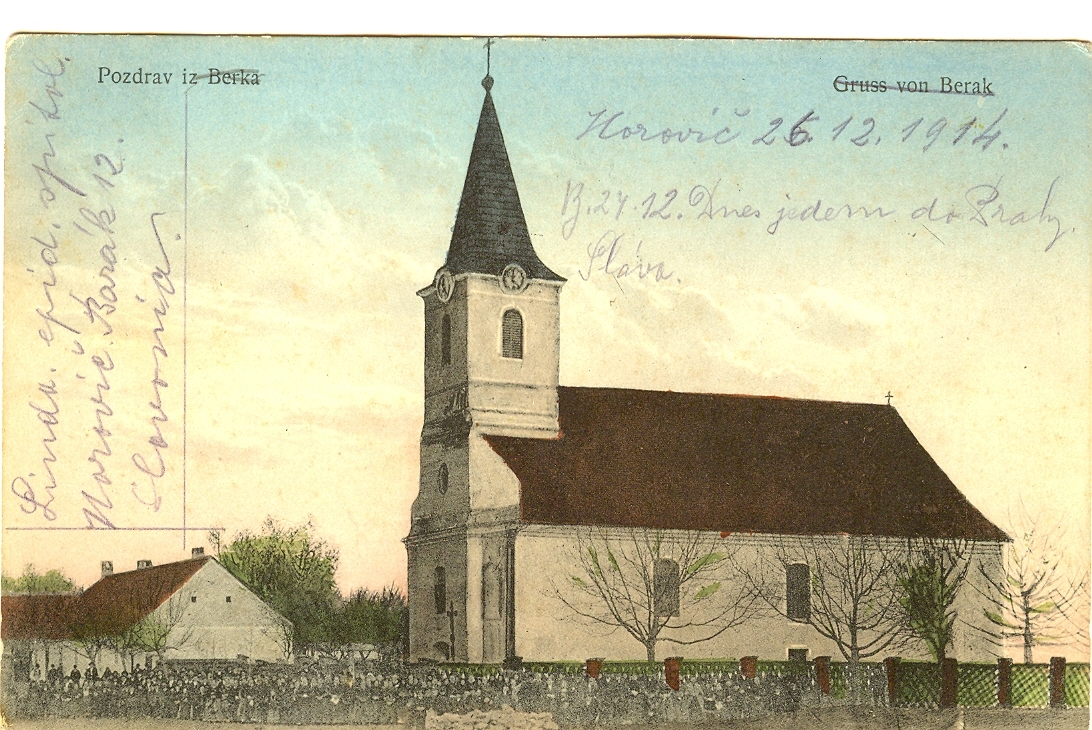 Pozdrav iz Berka
Gruss von Berak
Morovič 26. 12. 1914.
B. 27. 12. Dnes jedem do Prahy.
Sláva.
Linda. epid. spitol.
Morovič Barák 12.
Slavonia.